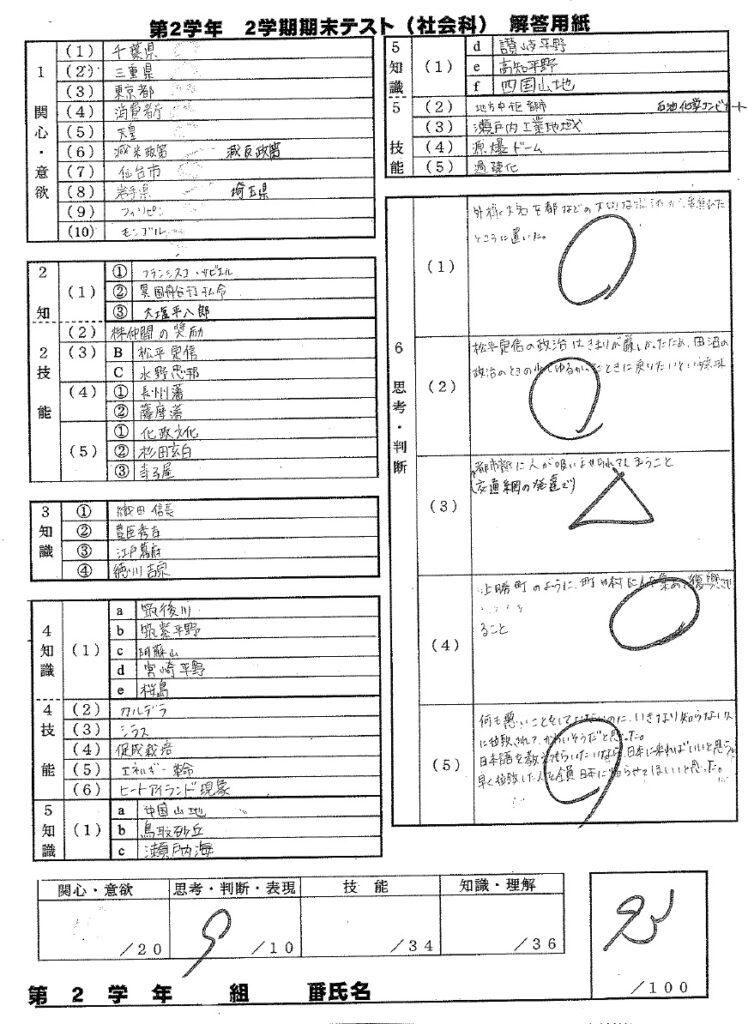 第2学年 2学期期末テスト（社会科） 解答用紙
1 関心・意欲
(1) 千葉県
(2) 三重県
(3) 東京都
(4) 消費者庁
(5) 天皇
(6) 減反政策
(7) 仙台市
(8) 岩手県 埼玉県
(9) フィリピン
(10) モンゴル
2 知
(1) ① フランシスコ・ザビエル
② 異国船打払令
③ 大塩平八郎
2 技能
(2) 株仲間の奨励
(3) B 松平定信
C 水野忠邦
(4) ① 長州藩
② 薩摩藩
(5) ① 化政文化
② 杉田玄白
③ 寺子屋
3 知識
① 織田信長
② 豊臣秀吉
③ 江戸幕府
④ 徳川吉宗
4 知識
(1) a 筑後川
b 筑紫平野
c 阿蘇山
d 宮崎平野
e 桜島
4 技能
(2) カルデラ
(3) シラス
(4) 促成栽培
(5) エネルギー革命
(6) ヒートアイランド現象
5 知識
(1) a 中国山地
b 鳥取砂丘
c 瀬戸内海
5 知識
(1) d 讃岐平野
e 高知平野
f 四国山地
5 技能
(2) 地方中枢都市 石油化学コンビナート
(3) 瀬戸内工業地域
(4) 原爆ドーム
(5) 過疎化
6 思考・判断
(1) 外様大名を都などの大切な
ところに置いた。
(2) 松平定信の政治はきまりが厳しかったため、田沼の
政治のときの少しゆるかったときに戻りたいという
(3) 都市部に人が吸いよせられてしまうこと
(交通網の発達で)
(4) 上勝町のように、町や村に人を集めて復興させ
ること
(5) 何も悪いことをしてないのに、いきなり知らない人
に拉致されて、かわいそうだと思った。
日本語を教えてもらいたいなら、日本に来ればいいと思う。
早く拉致した人を全員日本に帰らせてほしいと思った。
関心・意欲 思考・判断・表現 技能 知識・理解
/20 9 /10 /34 /36
/100
第2学年 組 番氏名